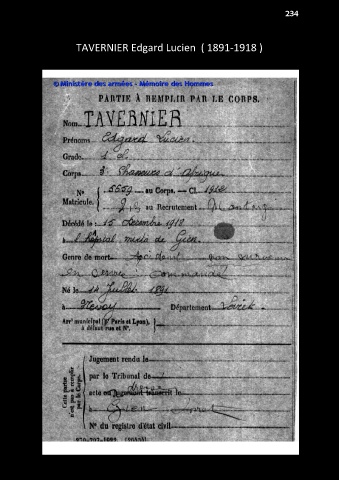 234
TAVERNIER Edgard Lucien ( 1891-1918 )
© Ministère des armées - Mémoire des Hommes
PARTIE À REMPLIR PAR LE CORPS.
Nom TAVERNIER
Prénoms Edgard Lucien
Grade
Corps Chasseurs d'Afrique
N° 5559 au Corps. — Cl. 
Matricule. au Recrutement
Décédé le 15 Décembre 1918
à l'hôpital mixte de Gien
Genre de mort Accident non survenu
en service commandé
Né le 14 Juillet 1891
à Nevoy Département Loiret
Arrt municipal (pr Paris et Lyon),
à défaut rue et N°.
Cette partie
n'est pas à remplir
par le Corps.
Jugement rendu le
par le Tribunal de
acte ou jugement transcrit le
à Gien Loiret
N° du registre d'état civil